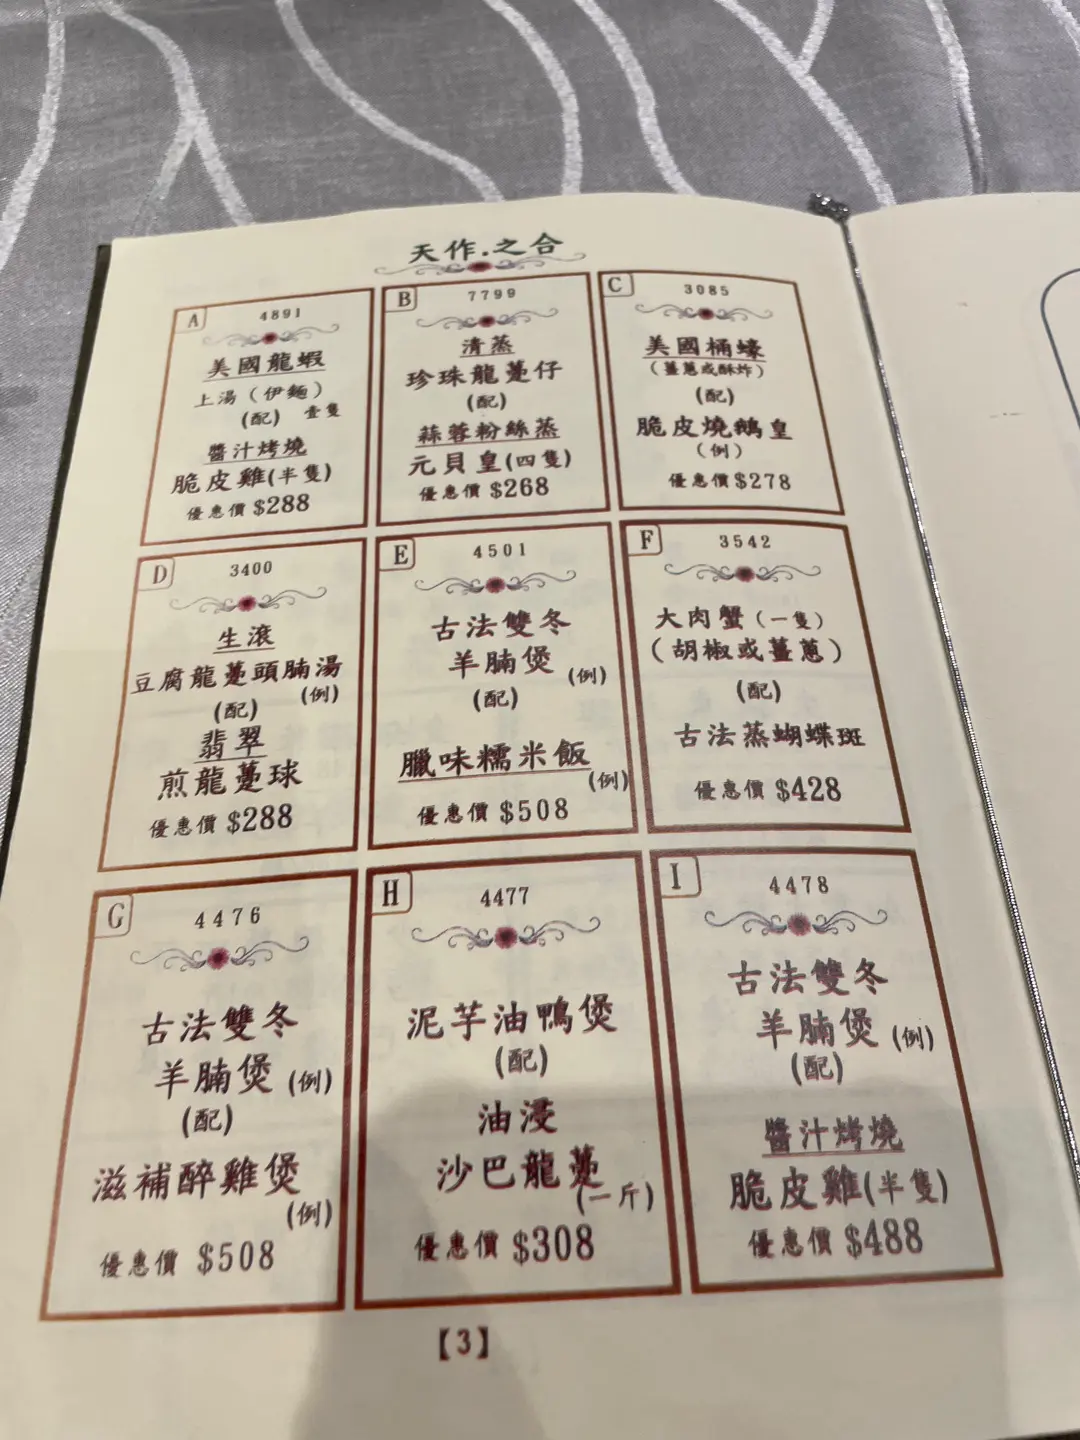 天作.之合
A
4891
美國龍蝦
上湯（伊麵）
(配) 壹隻
醬汁烤燒
脆皮雞(半隻)
優惠價 $288
B
7799
清蒸
珍珠龍躉仔
(配)
蒜蓉粉絲蒸
元貝皇(四隻)
優惠價 $268
C
3085
美國桶蠔
（薑蔥或酥炸）
(配)
脆皮燒鵝皇
（例）
優惠價 $278
D
3400
生滾
豆腐龍躉頭腩湯
(例)
(配)
翡翠
煎龍躉球
優惠價 $288
E
4501
古法雙冬
羊腩煲 (例)
(配)
臘味糯米飯
(例)
優惠價 $508
F
3542
大肉蟹（一隻）
（胡椒或薑蔥）
(配)
古法蒸蝴蝶斑
優惠價 $428
G
4476
古法雙冬
羊腩煲 (例)
(配)
滋補醉雞煲
(例)
優惠價 $508
H
4477
泥芋油鴨煲
(配)
油浸
沙巴龍躉
(一斤)
優惠價 $308
I
4478
古法雙冬
羊腩煲 (例)
(配)
醬汁烤燒
脆皮雞(半隻)
優惠價 $488
【3】